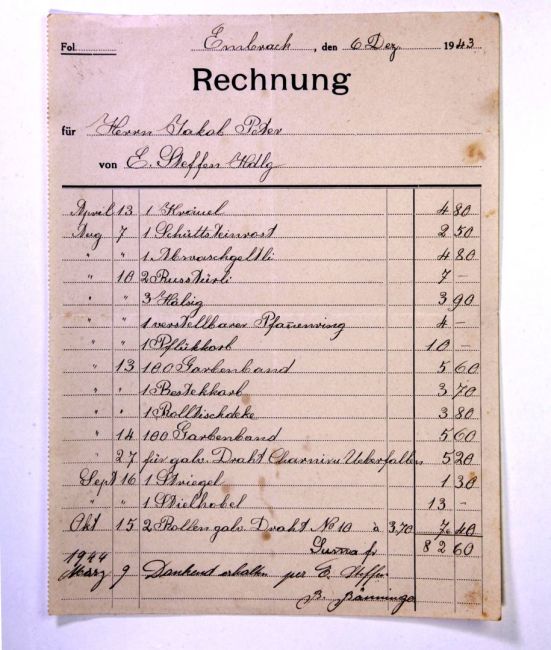 Fol. Embrach, den 6 Dez. 1943
Rechnung
für Herrn Jakob Peter
von E. Steffen Hdlg
April 13 1 Kräuel 4 80
Aug 7 1 Schüttsteinrost 2 50
" " 1 Abwaschgeltli 4 80
" 10 2 Russtürli 7 –
" " 3 Hälsig 3 90
" " 1 verstellbarer Pfannenring 4 –
" " 1 Pflükkorb 10 –
" 13 100 Garbenband 5 60
" " 1 Bestekkorb 3 70
" " 1 Rolltischdeke 3 80
" 14 100 Garbenband 5 60
" 27 für galv. Draht Charnier Ueberfallen 5 20
Sept 16 1 Striegel 1 30
" " 1 Stielhobel 13 –
Okt 15 2 Rollen galv. Draht No 10 à 3.70 7 40
Suma fr 82 60
1944
März 9 Dankend erhalten per E. Steffen
B.